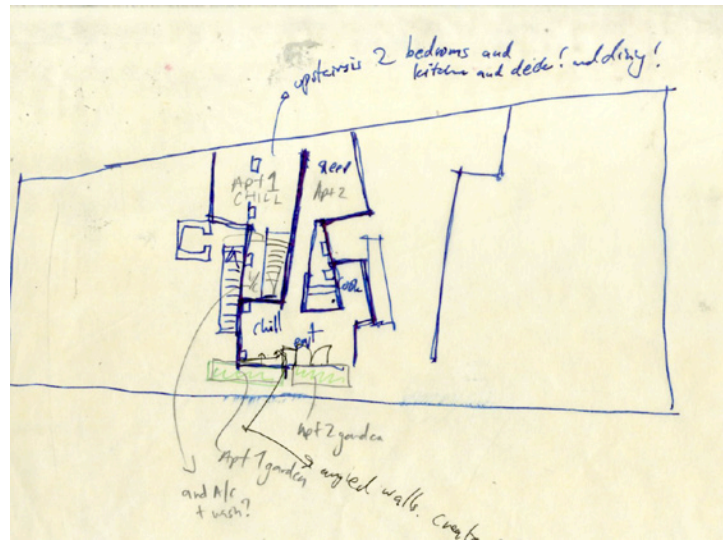 upstairsis 2 bedrooms and
kitchen and deck! and dining!
Apt 1
CHILL
sleep
Apt 2
cook
chill
eat
Apt 2 garden
Apt 1 garden
angled walls.
and A/c
+ wash?